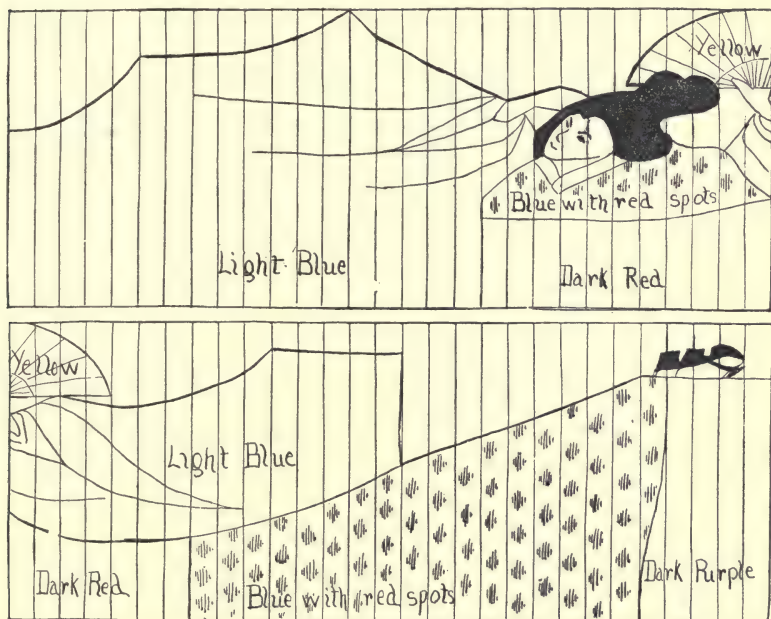 Yellow
Blue with red spots
Light Blue
Dark Red
Yellow
Light Blue
Dark Red
Blue with red spots
Dark Purple